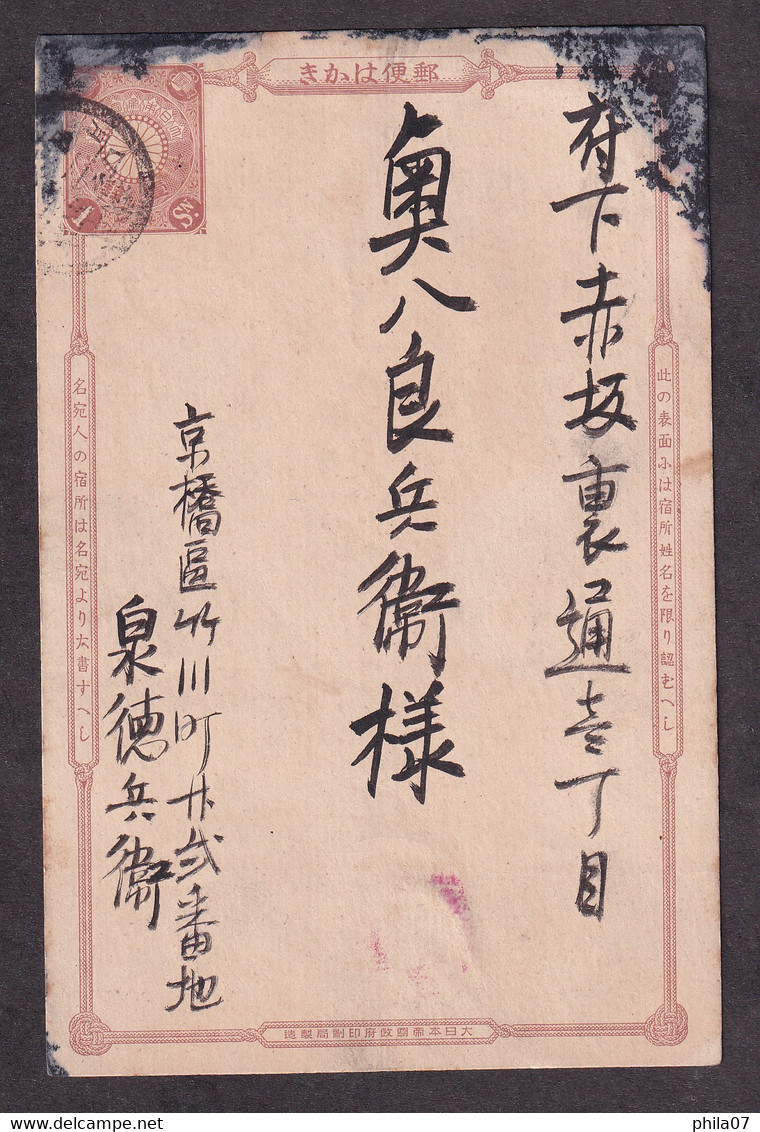 郵便はかき
此の表面には宿所姓名を限り認むへし
府下赤坂裏通壱丁目
奥八良兵衛様
京橋區竹川町廿弐番地
泉徳兵衛
名宛人の宿所は名宛より大書すへし
大日本帝國政府印刷局製造
1 Sn
www.delcampe.net
phila07